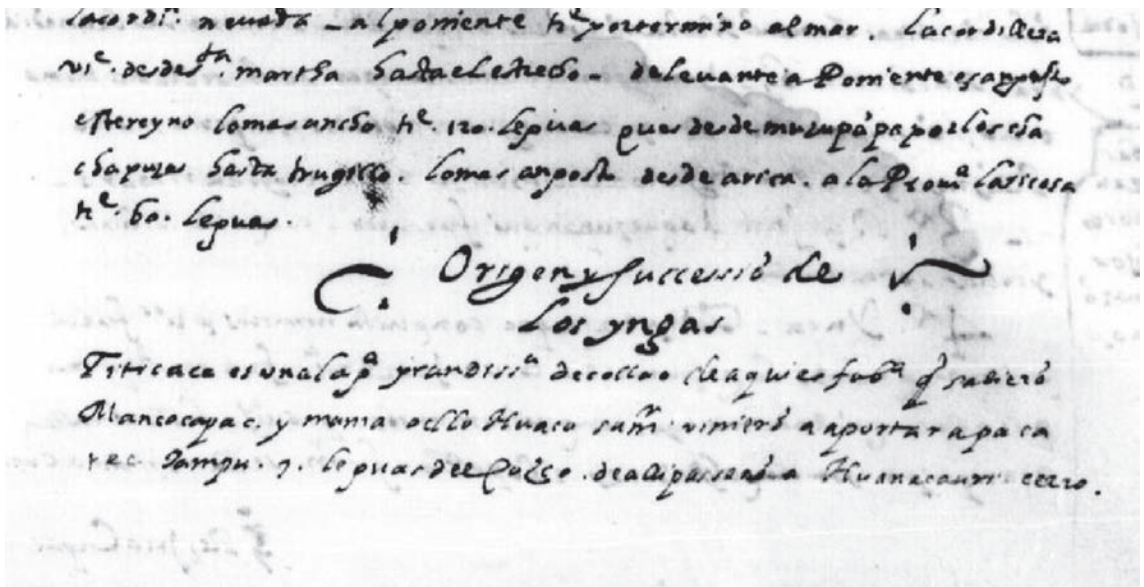 la cordi.ª nevada - al poniente tᵉ. por termino al mar. La cordillera
viᵉ. desde sᵗᵃ martha hasta el estrecho - de levante a Poniente
este reyno lo mas ancho tᵉ. 120. leguas ques desde muyupāpa por los cha
chapuias hasta trugillo. lo mas angosto desde arica. a la Prouª Laricaxa
tᵉ. 60. leguas.
Origen y succession de
Los yngas
Titicaca es una lagª grandissª de collao de aqui es fabª q̄ salierō
Mancocapac. y mama oello Huaco vinierō a aportar a paca
rec Tampu. 7. leguas del Cuzco. de alli passarō a Huanacauri cerro.